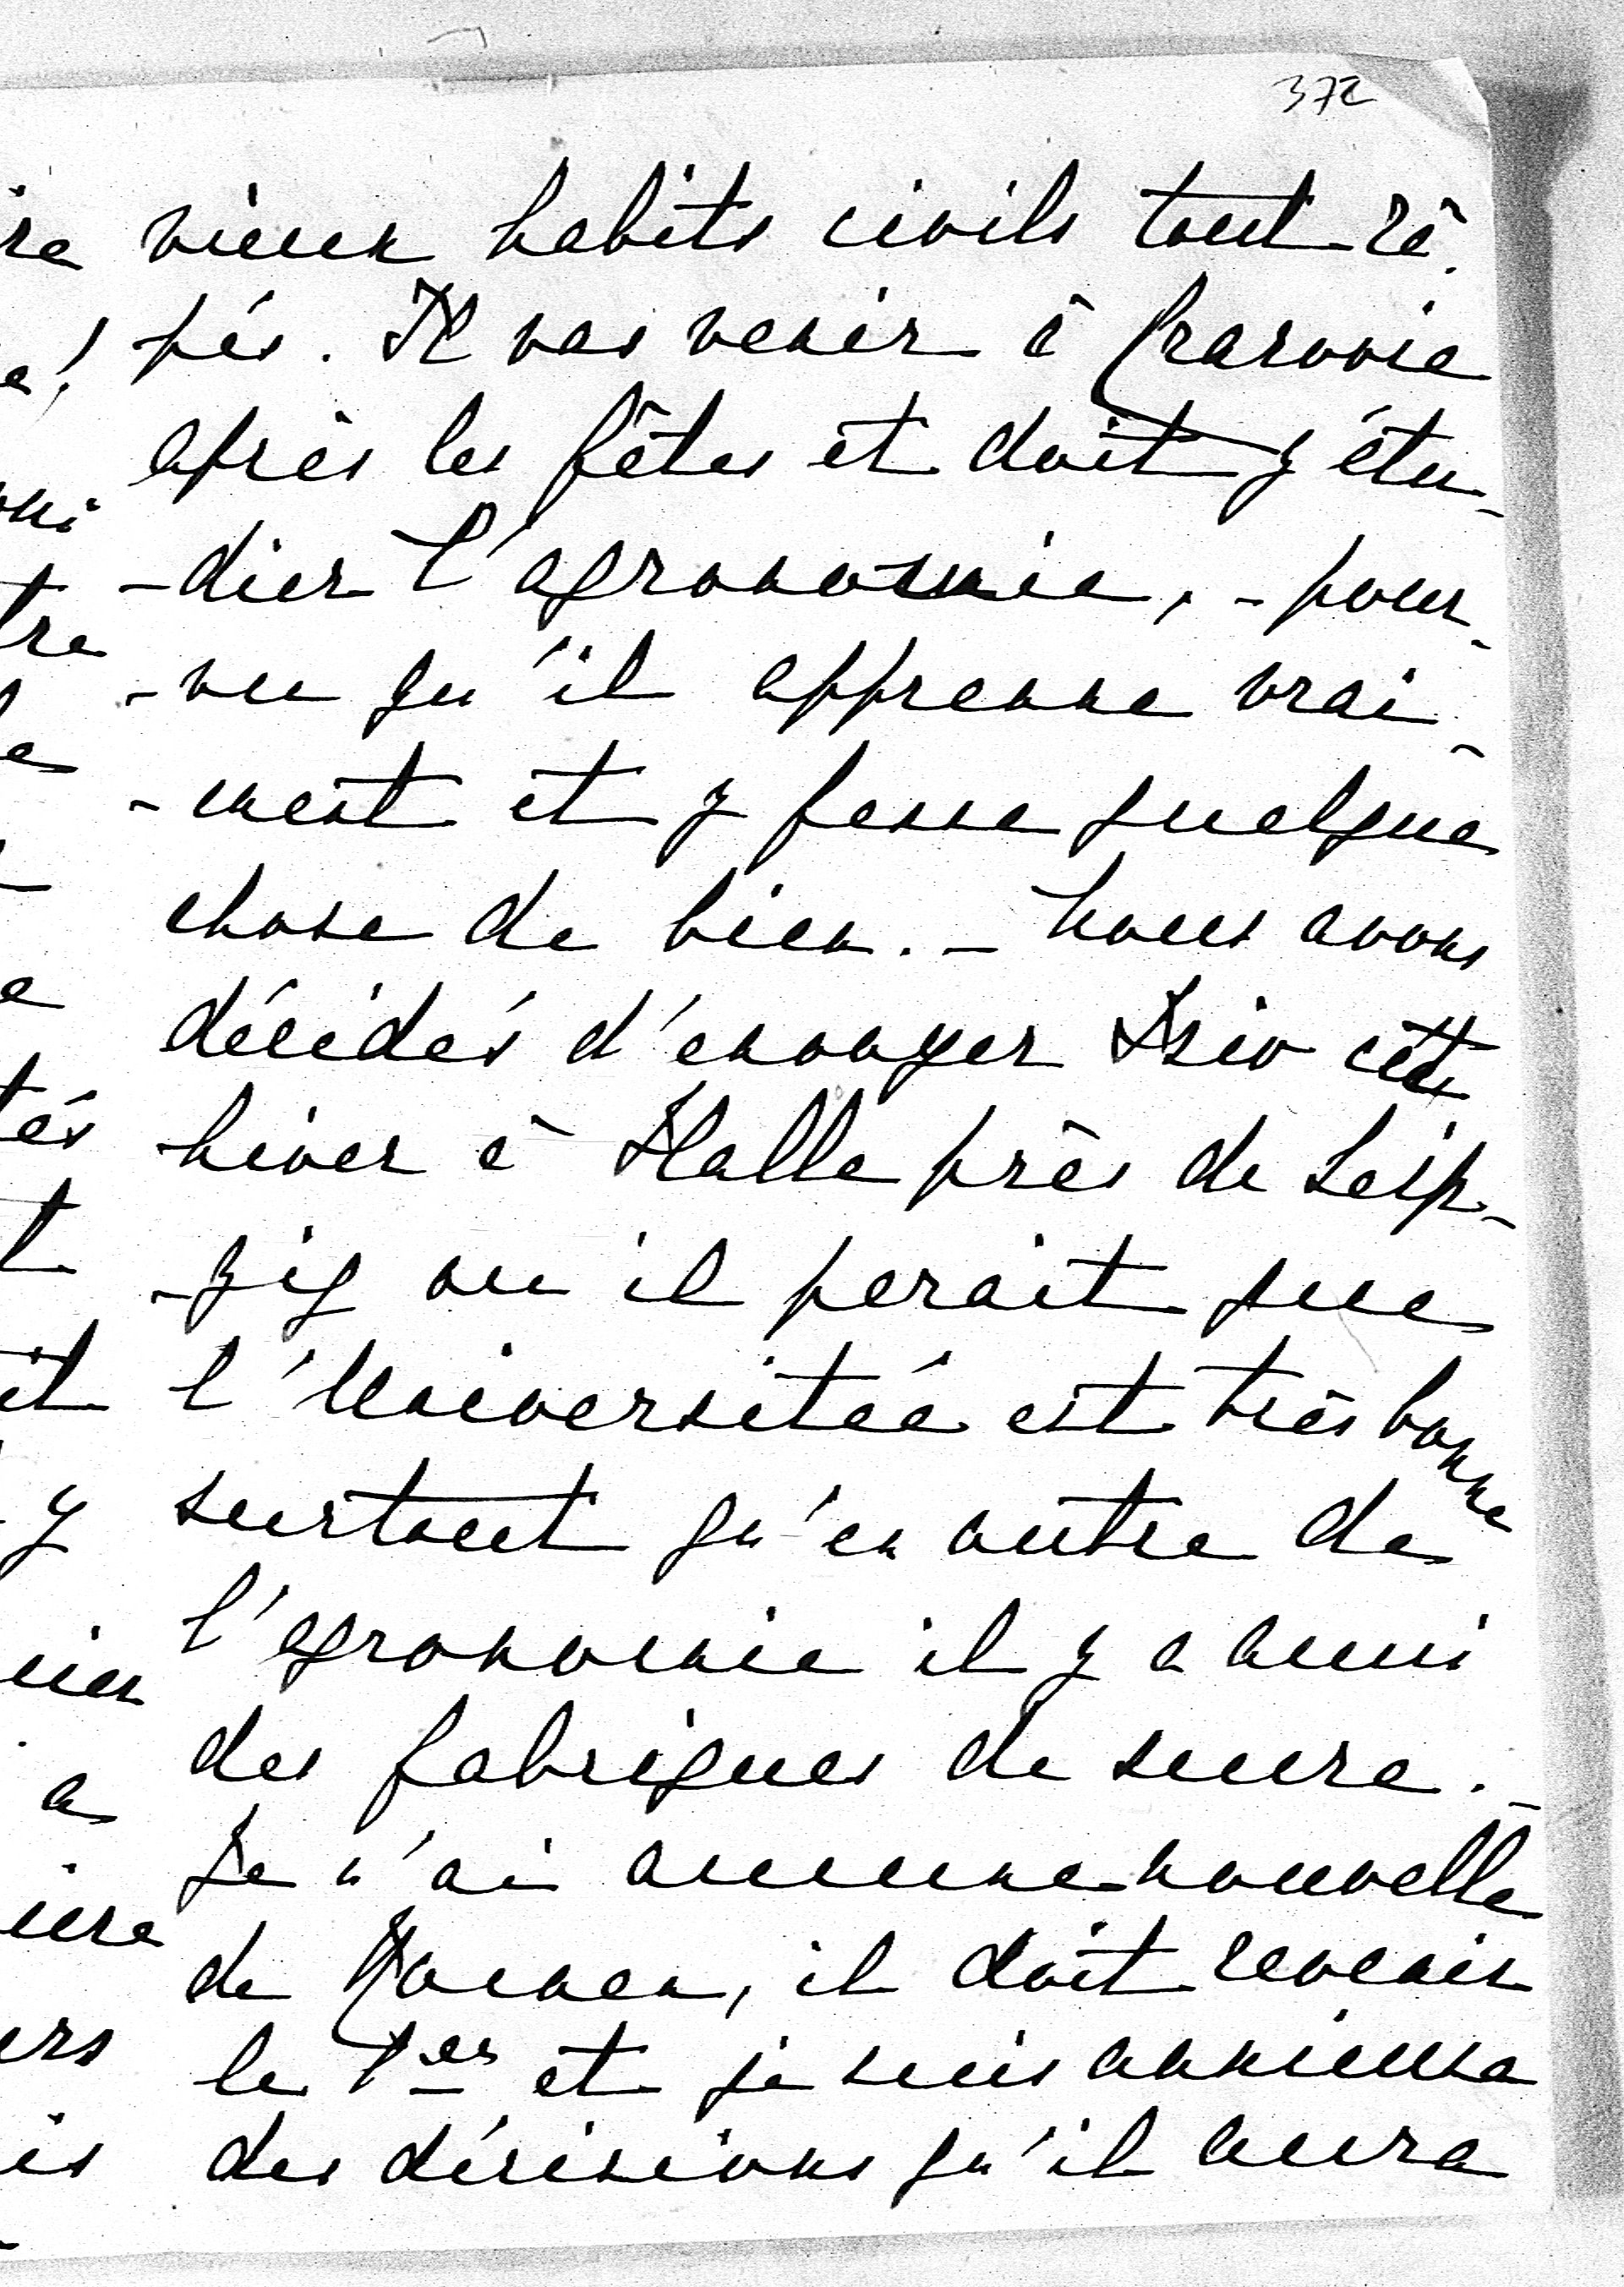 372
vieux habits civils tout râ-
pés. Il vas venir à Cracovie
après les fêtes et doit y étu-
-dier l'agronomie, - pour-
-vu qu'il apprenne vrai-
-ment et y fasse quelque
chose de bien. - Nous avons
décidés d'envoyer cet
hiver à Halle près de Leip-
-zig ou il parait que
l'Universitée est très bonne
surtout qu'en outre de
l'agronomie il y a aussi
des fabriques de sucre. -
Je n'ai aucune nouvelle
de il doit revenir
le 1er et je suis anxieuse
des décisions qu'il aura